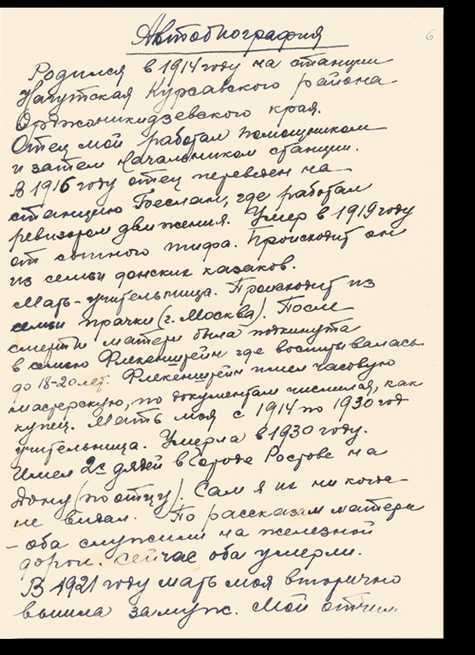 Автобиография
6
Родился в 1914 году на станции
Нагутская Курсавского района
Орджоникидзевского края.
Отец мой работал помощником
и затем начальником станции.
В 1916 году отец переведен на
станцию Беслан, где работал
ревизором движения. Умер в 1919 году
от сыпного тифа. Происходит он
из семьи донских казаков.
Мать-учительница. Происходит из
семьи прачки (г. Москва). После
смерти матери была подкинута
в семью Флекенштейн где воспитывалась
до 18-20 лет. Флекенштейн имел часовую
мастерскую, по документам числился, как
купец. Мать моя с 1914 по 1930 год
учительница. Умерла в 1930 году.
Имел 2х дядей в городе Ростове на
Дону (по отцу). Сам я их ни когда
не видал. По рассказам матери
– оба служили на железной
дороге. Сейчас оба умерли.
В 1921 году мать моя вторично
вышла замуж. Мой отчим.